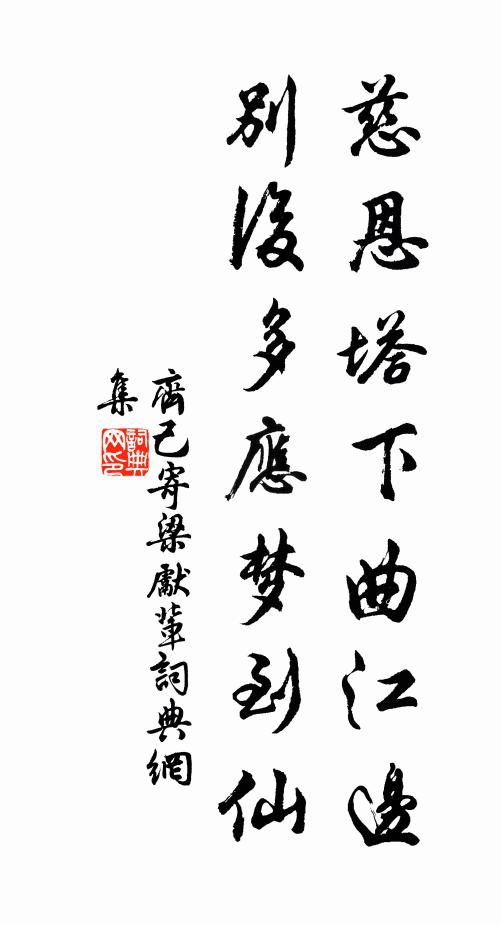 慈恩塔下曲江邊
別後多應梦到仙
齊己寄梁獻輩詞典網
集
詞典
网印